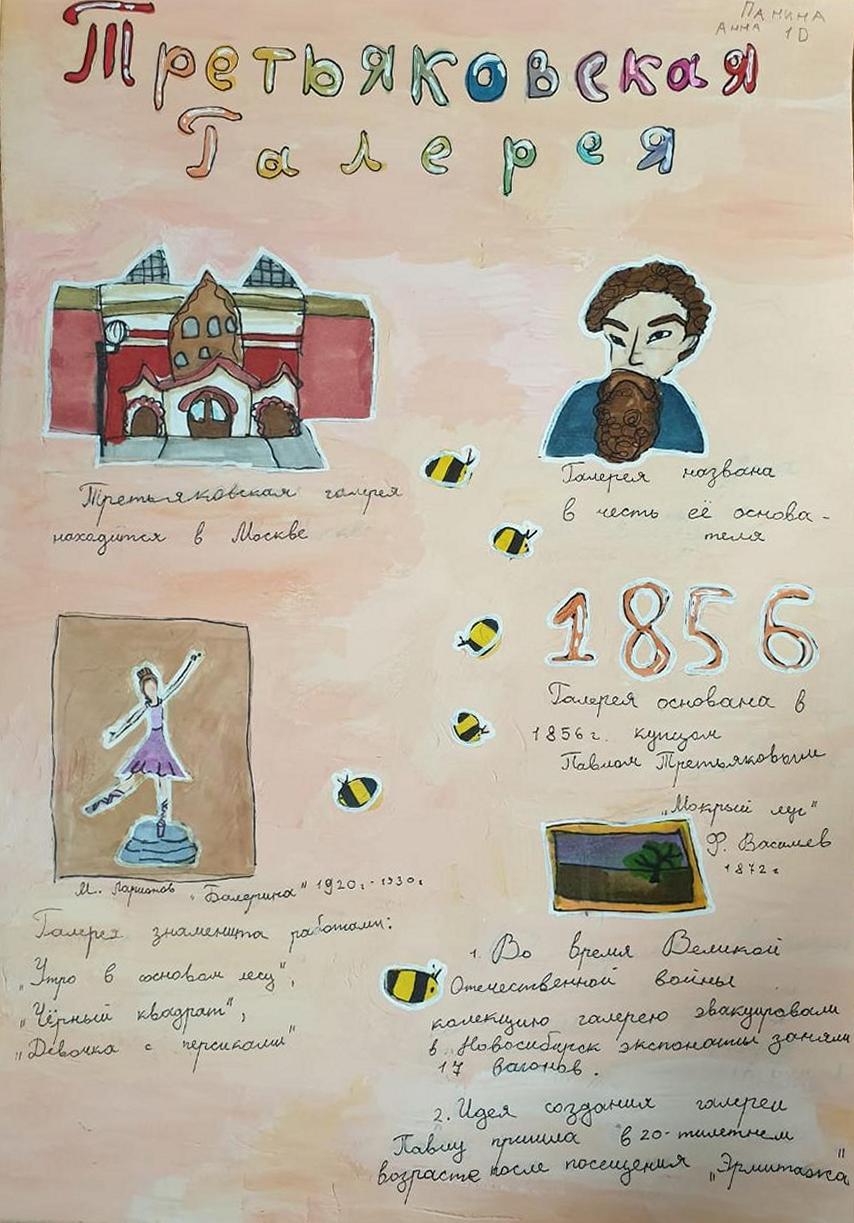 Панина
Анна 1D
Третьяковская
Галерея
Третьяковская галерея
находится в Москве
Галерея названа
в честь её основа-
теля
1856
Галерея основана в
1856г. купцом
Павлом Третьяковым
„Мокрый луг"
Ф. Васильев
1872г
М. Ларионов „Балерина" 1920г-1930г
Галерея знаменита работами:
„Утро в сосновом лесу",
„Чёрный квадрат",
„Девочка с персиками"
1. Во время Великой
Отечественной войны
колекцию галерею эвакуировали
в Новосибирск экспонаты заняли
17 вагонов.
2. Идея создания галереи
Павлу пришла в 20-тилетнем
возрасте после посещения „Эрмитажа"